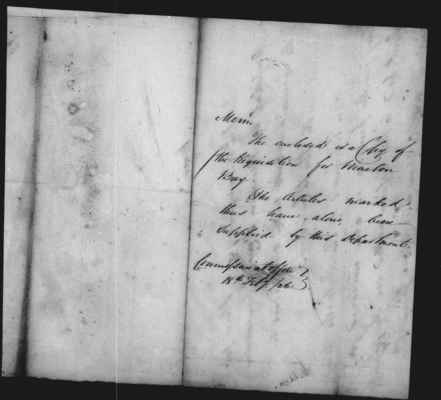 Mem.
The enclosed is a Copy of
the Requisition for Moreton
Bay
The Articles marked
thus have alone been
supplied by this Department.
Commissariat Office
18th Feby